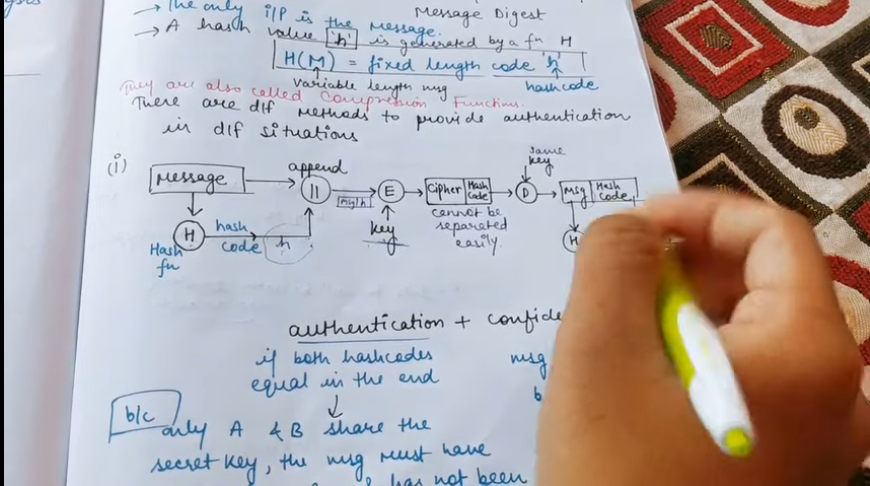 → The only i/p is the message.
Message Digest
→ A hash value 'h' is generated by a fn H
H(M) = fixed length code 'h'
variable length msg
hashcode
They are also called Compression Functions.
There are dif methods to provide authentication
in dif situations
(i)
Message
append
||
Msg|h
E
key
Cipher Hash Code
cannot be separated easily
same key
D
Msg Hash Code
H
Hash fn
H
hash code
h
authentication + confide
if both hashcodes
equal in the end
msg
b
b/c
only A & B share the
secret key, the msg must have
has not been